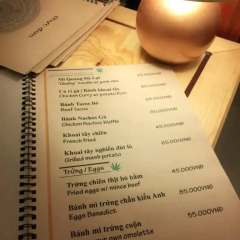 thực đơn
Mì Quảng Đà Lạt
45.000VNĐ
Cà ri gà | Bánh khoai tây
Chicken Curry w/ potato Roti
65.000VNĐ
Bánh Tacos Bò
Beef Tacos
55.000VNĐ
Bánh Nachos Gà
Chicken Nachos Waffle
45.000VNĐ
Khoai tây chiên
French fried
45.000VNĐ
Khoai tây nghiền đút lò
Grilled mash potato
Trứng / Eggs
Trứng chiên thịt bò băm
Fried eggs w/ mince beef
45.000VNĐ
Bánh mì trứng chần kiểu Anh
Eggs Benedict
85.000VNĐ
Bánh mì trứng cuộn
omelette
55.000VNĐ